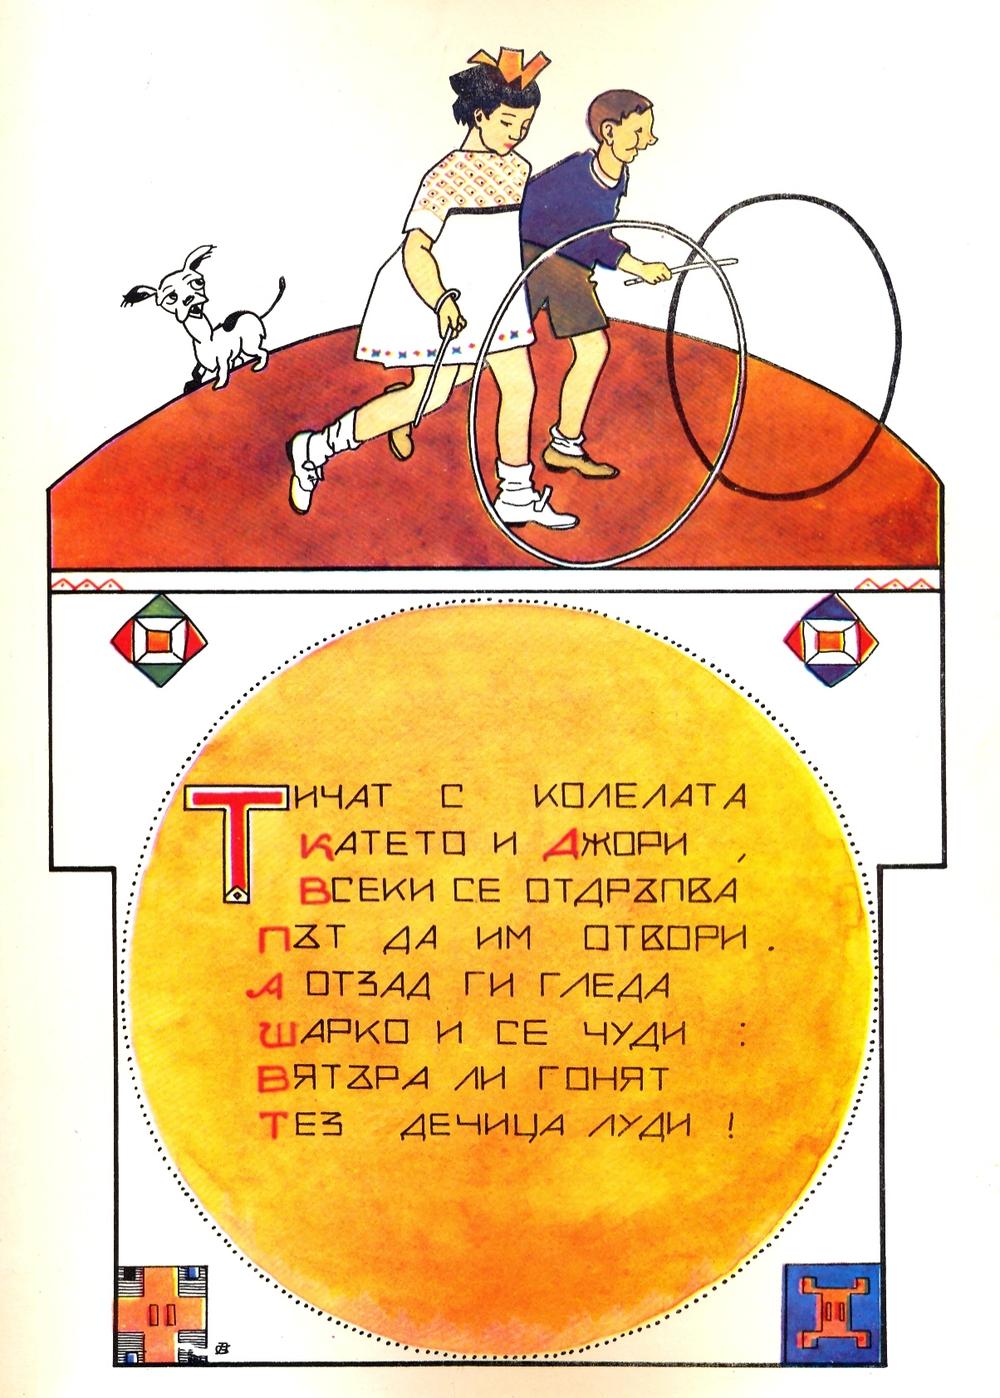 ТИЧАТ С КОЛЕЛАТА
КАТЕТО И ДЖОРИ,
ВСЕКИ СЕ ОТДРЪПВА
ПЪТ ДА ИМ ОТВОРИ.
А ОТЗАД ГИ ГЛЕДА
ШАРКО И СЕ ЧУДИ:
ВЯТЪРА ЛИ ГОНЯТ
ТЕЗ ДЕЧИЦА ЛУДИ!